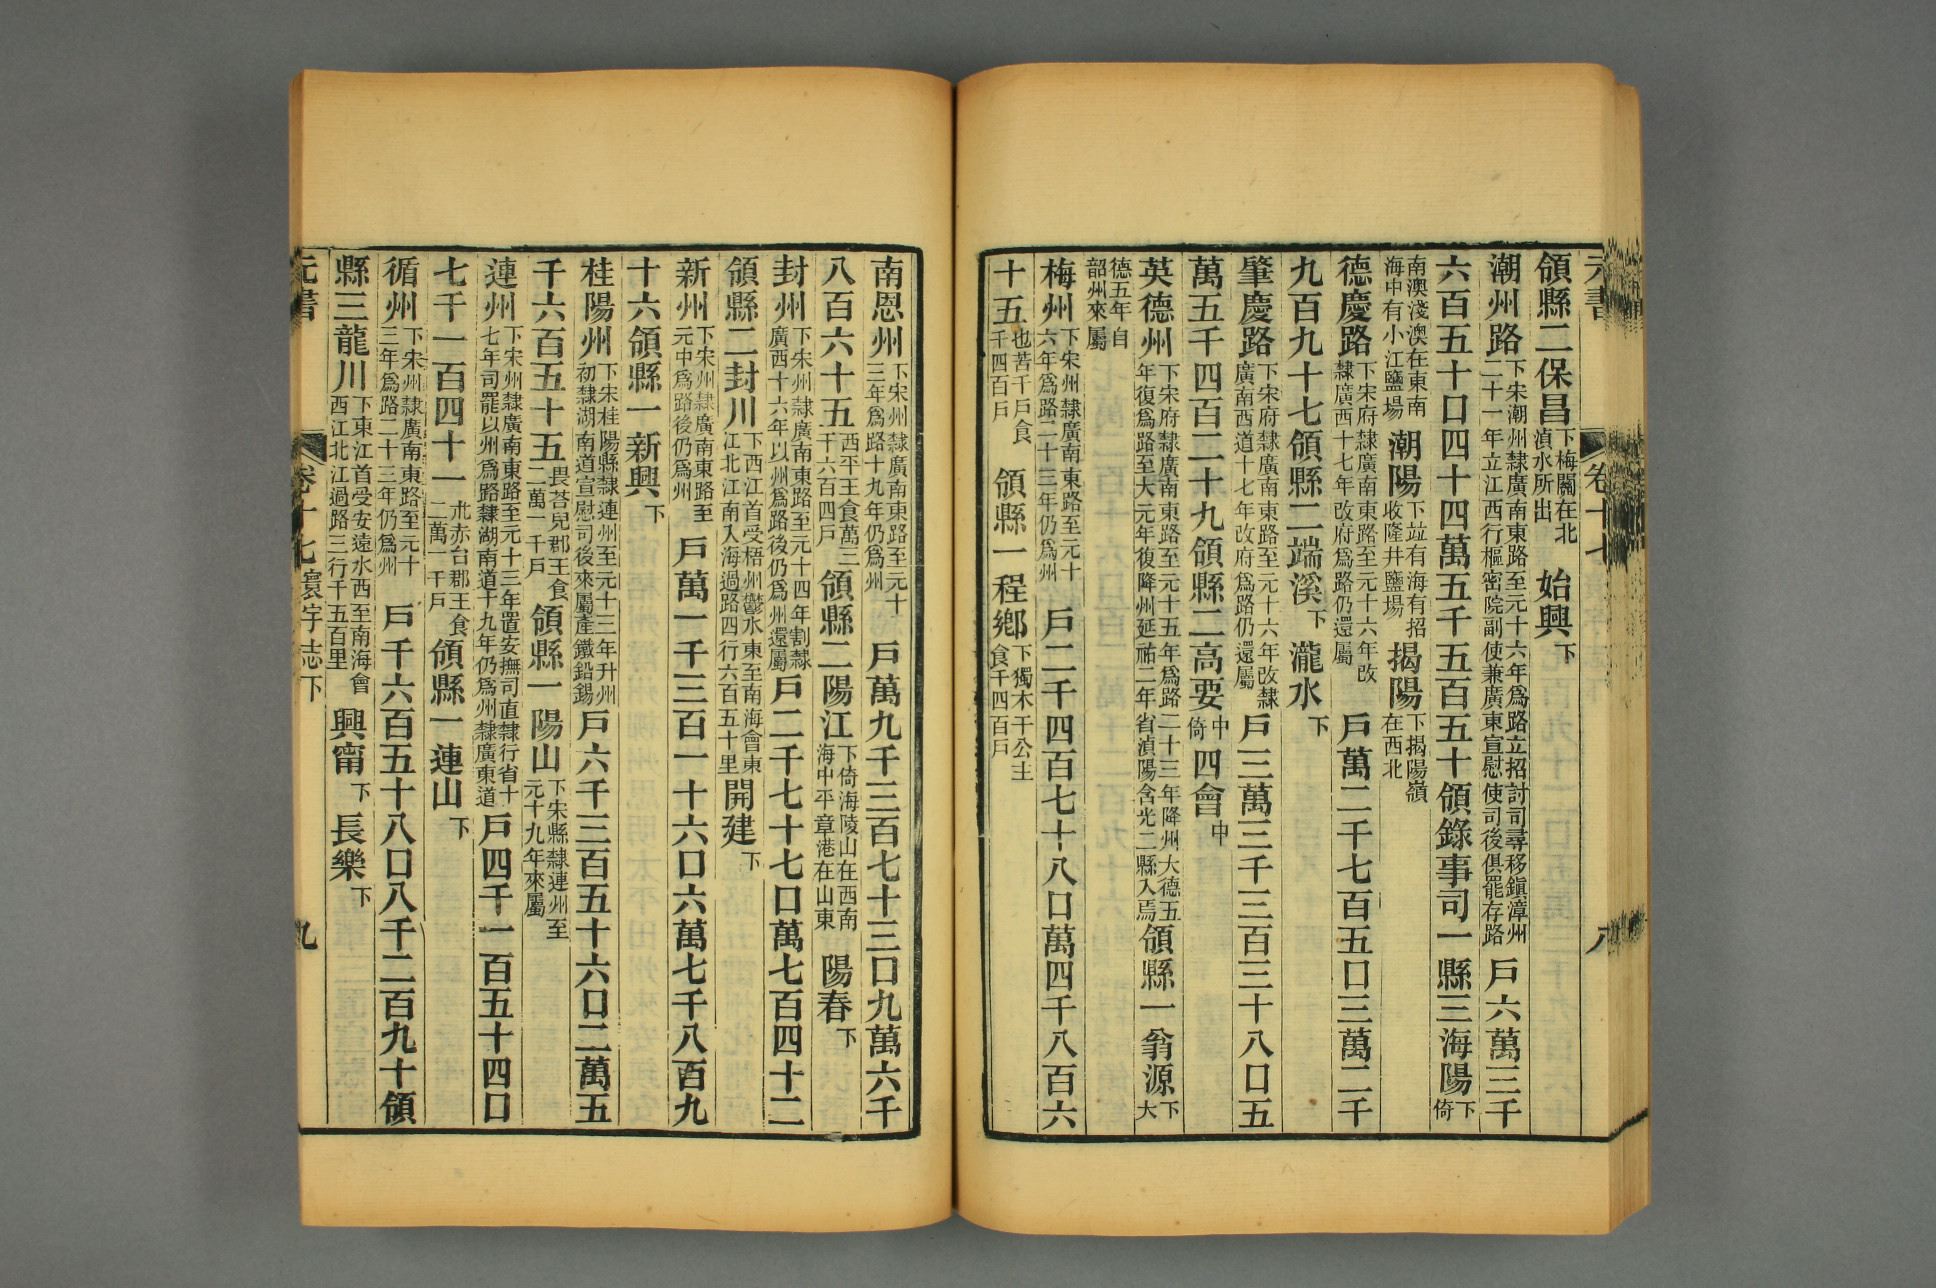 元書　卷十七　八
領縣二保昌下梅關在北湞水所出　始興下
潮州路下宋潮州隸廣南東路至元十六年爲路立招討司尋移鎭漳州二十一年立江西行樞密院副使兼廣東宣慰使司後俱罷存路　戶六萬三千
六百五十口四十四萬五千五百五十領錄事司一縣三海陽下倚
南澳淺澳在東南海中有小江鹽場　潮陽下竝有海有招收隆井鹽場　揭陽下揭陽嶺在西北
德慶路下宋府隸廣南東路至元十六年改隸廣西十七年改府爲路仍還屬　戶萬二千七百五口三萬二千
九百九十七領縣二端溪下　瀧水下
肇慶路下宋府隸廣南東路至元十六年改隸廣南西道十七年改府爲路仍還屬　戶三萬三千三百三十八口五
萬五千四百二十九領縣二高要中倚四會中
英德州下宋府隸廣南東路至元十五年爲路二十三年降州大德五年復爲路至大元年復降州延祐二年省湞陽含光二縣入焉領縣一翁源下大
德五年自韶州來屬
梅州下宋州隸廣南東路至元十六年爲路二十三年仍爲州　戶二千四百七十八口萬四千八百六
十五也苦千戶食千四百戶　領縣一程鄉下獨木干公主食千四百戶
南恩州下宋州隸廣南東路至元十三年爲路十九年仍爲州　戶萬九千三百七十三口九萬六千
八百六十五西平王食萬三千六百四戶　領縣二陽江下倚海陵山在西南海中平章港在山東　陽春下
封州下宋州隸廣南東路至元十四年割隸廣西十六年以州爲路後仍爲州還屬戶二千七十七口萬七百四十二
領縣二封川下西江首受梧州鬱水東至南海會東江北江南入海過路四行六百五十里開建下
新州下宋州隸廣南東路至元中爲路後仍爲州　戶萬一千三百一十六口六萬七千八百九
十六領縣一新興下
桂陽州下宋桂陽縣隸連州至元十三年升州初隸湖南道宣慰司後來屬產鐵鉛錫戶六千三百五十六口二萬五
千六百五十五畏荅兒郡王食二萬一千戶　領縣一陽山下宋縣隸連州至元十九年來屬
連州下宋州隸廣南東路至元十三年置安撫司直隸行省十七年司罷以州爲路隸湖南道十九年仍爲州隸廣東道　戶四千一百五十四口
七千一百四十一朮赤台郡王食二萬一千戶　領縣一連山下
循州下宋州隸廣南東路至元十三年爲路二十三年仍爲州　戶千六百五十八口八千二百九十領
縣三龍川下東江首受安遠水西至南海會西江北江過路三行千五百里　興甯下　長樂下
元書　卷十七　寰宇志下　九